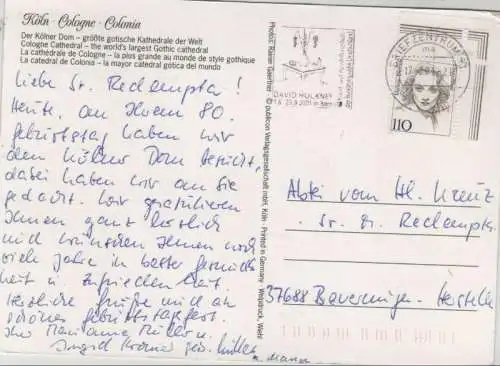 Köln · Cologne · Colonia
Der Kölner Dom – größte gotische Kathedrale der Welt
Cologne Cathedral – the world's largest Gothic cathedral
La cathédrale de Cologne – la plus grande au monde de style gothique
La catedral de Colonia – la mayor catedral gótica del mundo
Liebe Sr. Redempta!
Heute, an Ihrem 80.
Geburtstag haben wir
den Kölner Dom besucht,
dabei haben wir an Sie
gedacht. Wir gratulieren
Ihnen ganz herzlich
und wünschen Ihnen noch
viele Jahre in bester Gesund
heit u. Zufriedenheit.
Herzliche Grüße und ein
schönes Geburtstagsfest.
Ihre Marianne Müller u.
Ingrid Kramer geb. Müller
Photos: Rainer Gaertner © publicon Verlagsgesellschaft mbH, Köln · Printed in Germany
BRIEFZENTRUM
DAVID HOCKNEY
110
Abtei vom Hl. Kreuz
Sr. M. Redempta
37688 Beverungen - Herstelle